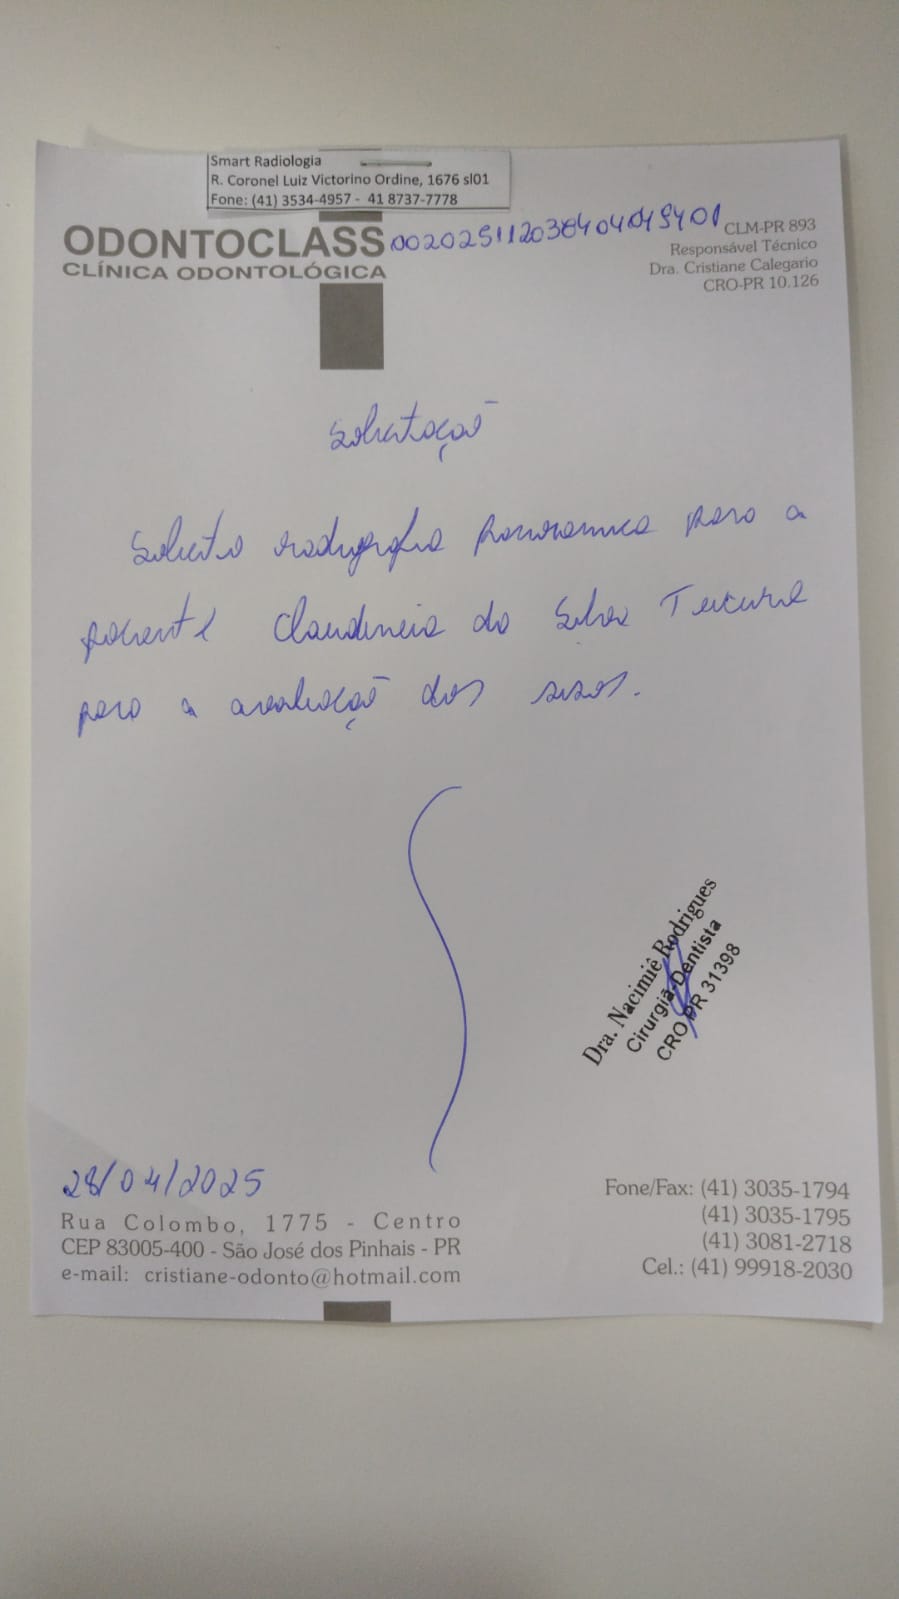 Smart Radiologia
R. Coronel Luiz Victorino Ordine, 1676 sl01
Fone: (41) 3534-4957 - 41 8737-7778
ODONTOCLASS
CLÍNICA ODONTOLÓGICA
CLM-PR 893
Responsável Técnico
Dra. Cristiane Calegario
CRO-PR 10.126
Solicitação
Solicito radiografia panoramica para a
paciente Claudineia da Silva Teixeira
para a avaliação dos sisos.
Dra. Nacimiê Rodrigues
Cirurgiã-Dentista
CRO PR 31398
28/04/2025
Rua Colombo, 1775 - Centro
CEP 83005-400 - São José dos Pinhais - PR
e-mail: cristiane-odonto@hotmail.com
Fone/Fax: (41) 3035-1794
(41) 3035-1795
(41) 3081-2718
Cel.: (41) 99918-2030